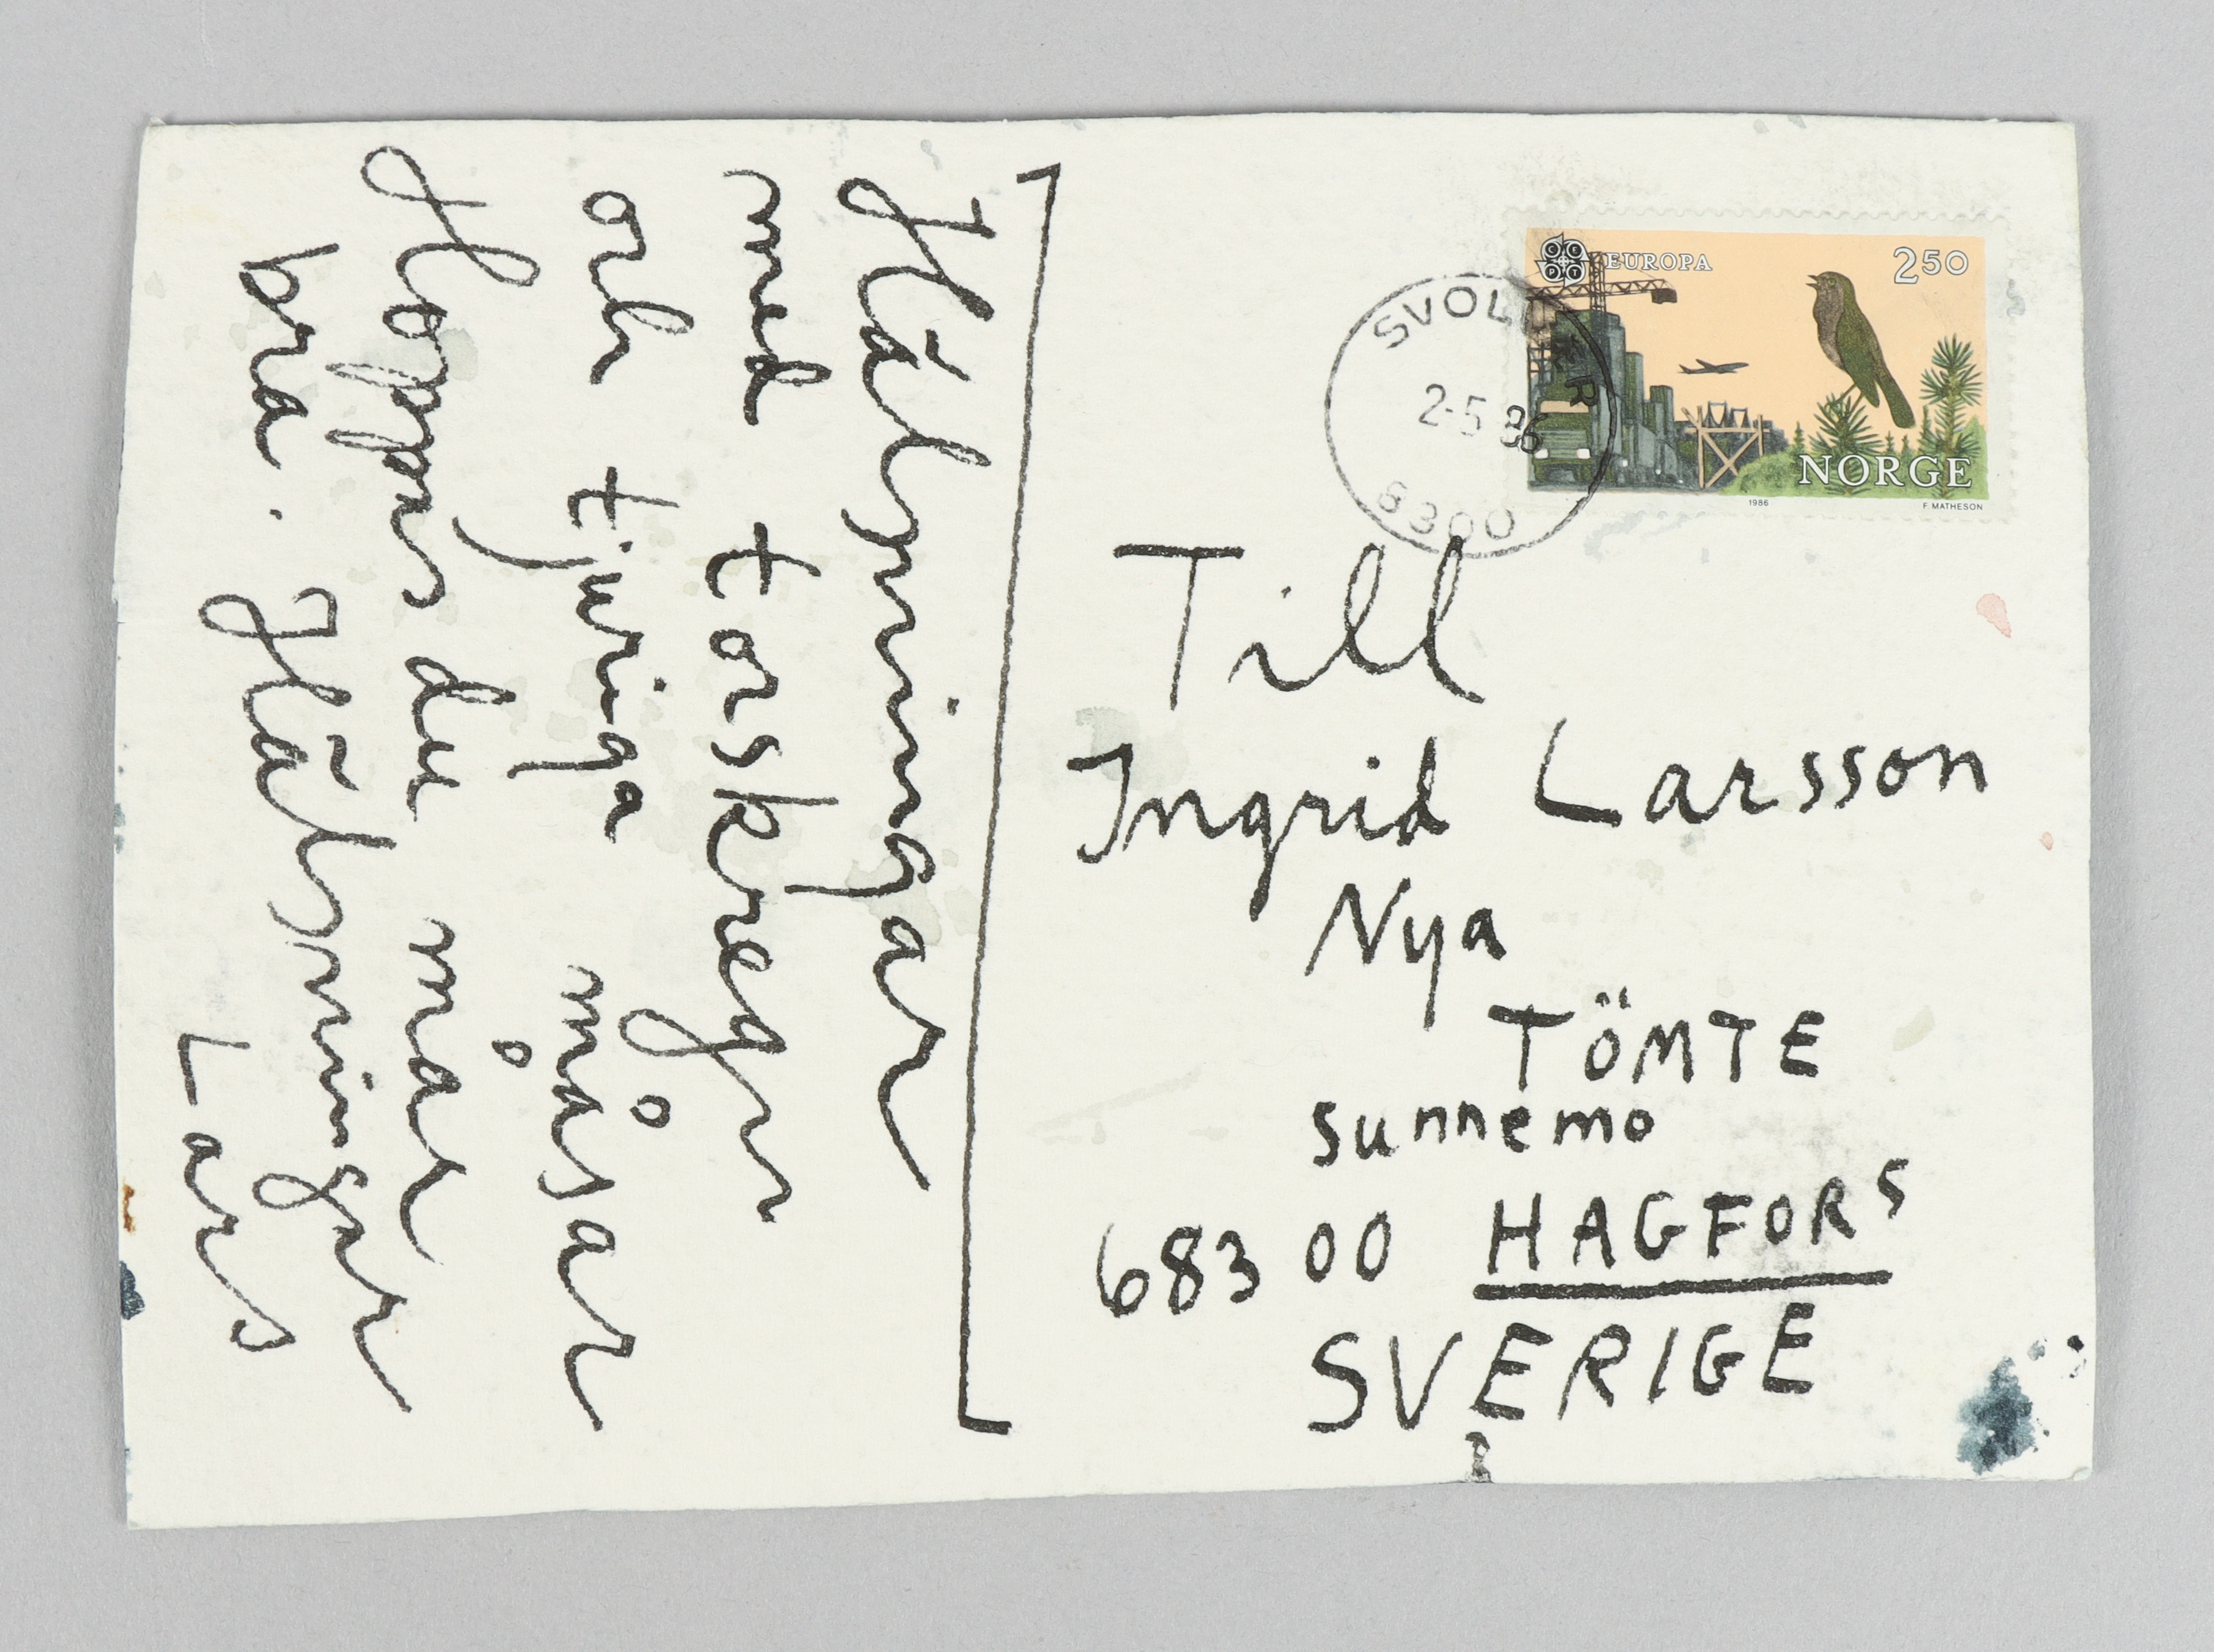 EUROPA 250
CEPT
NORGE
1986 F. MATHESON
SVOLVÆR
2-5 86
8300
Till
Ingrid Larsson
Nya
TÖMTE
sunnemo
683 00 HAGFORS
SVERIGE
Hälsningar
med torskregn
och tjuriga måsar
Hoppas du mår
bra. Hälsningar
Lars